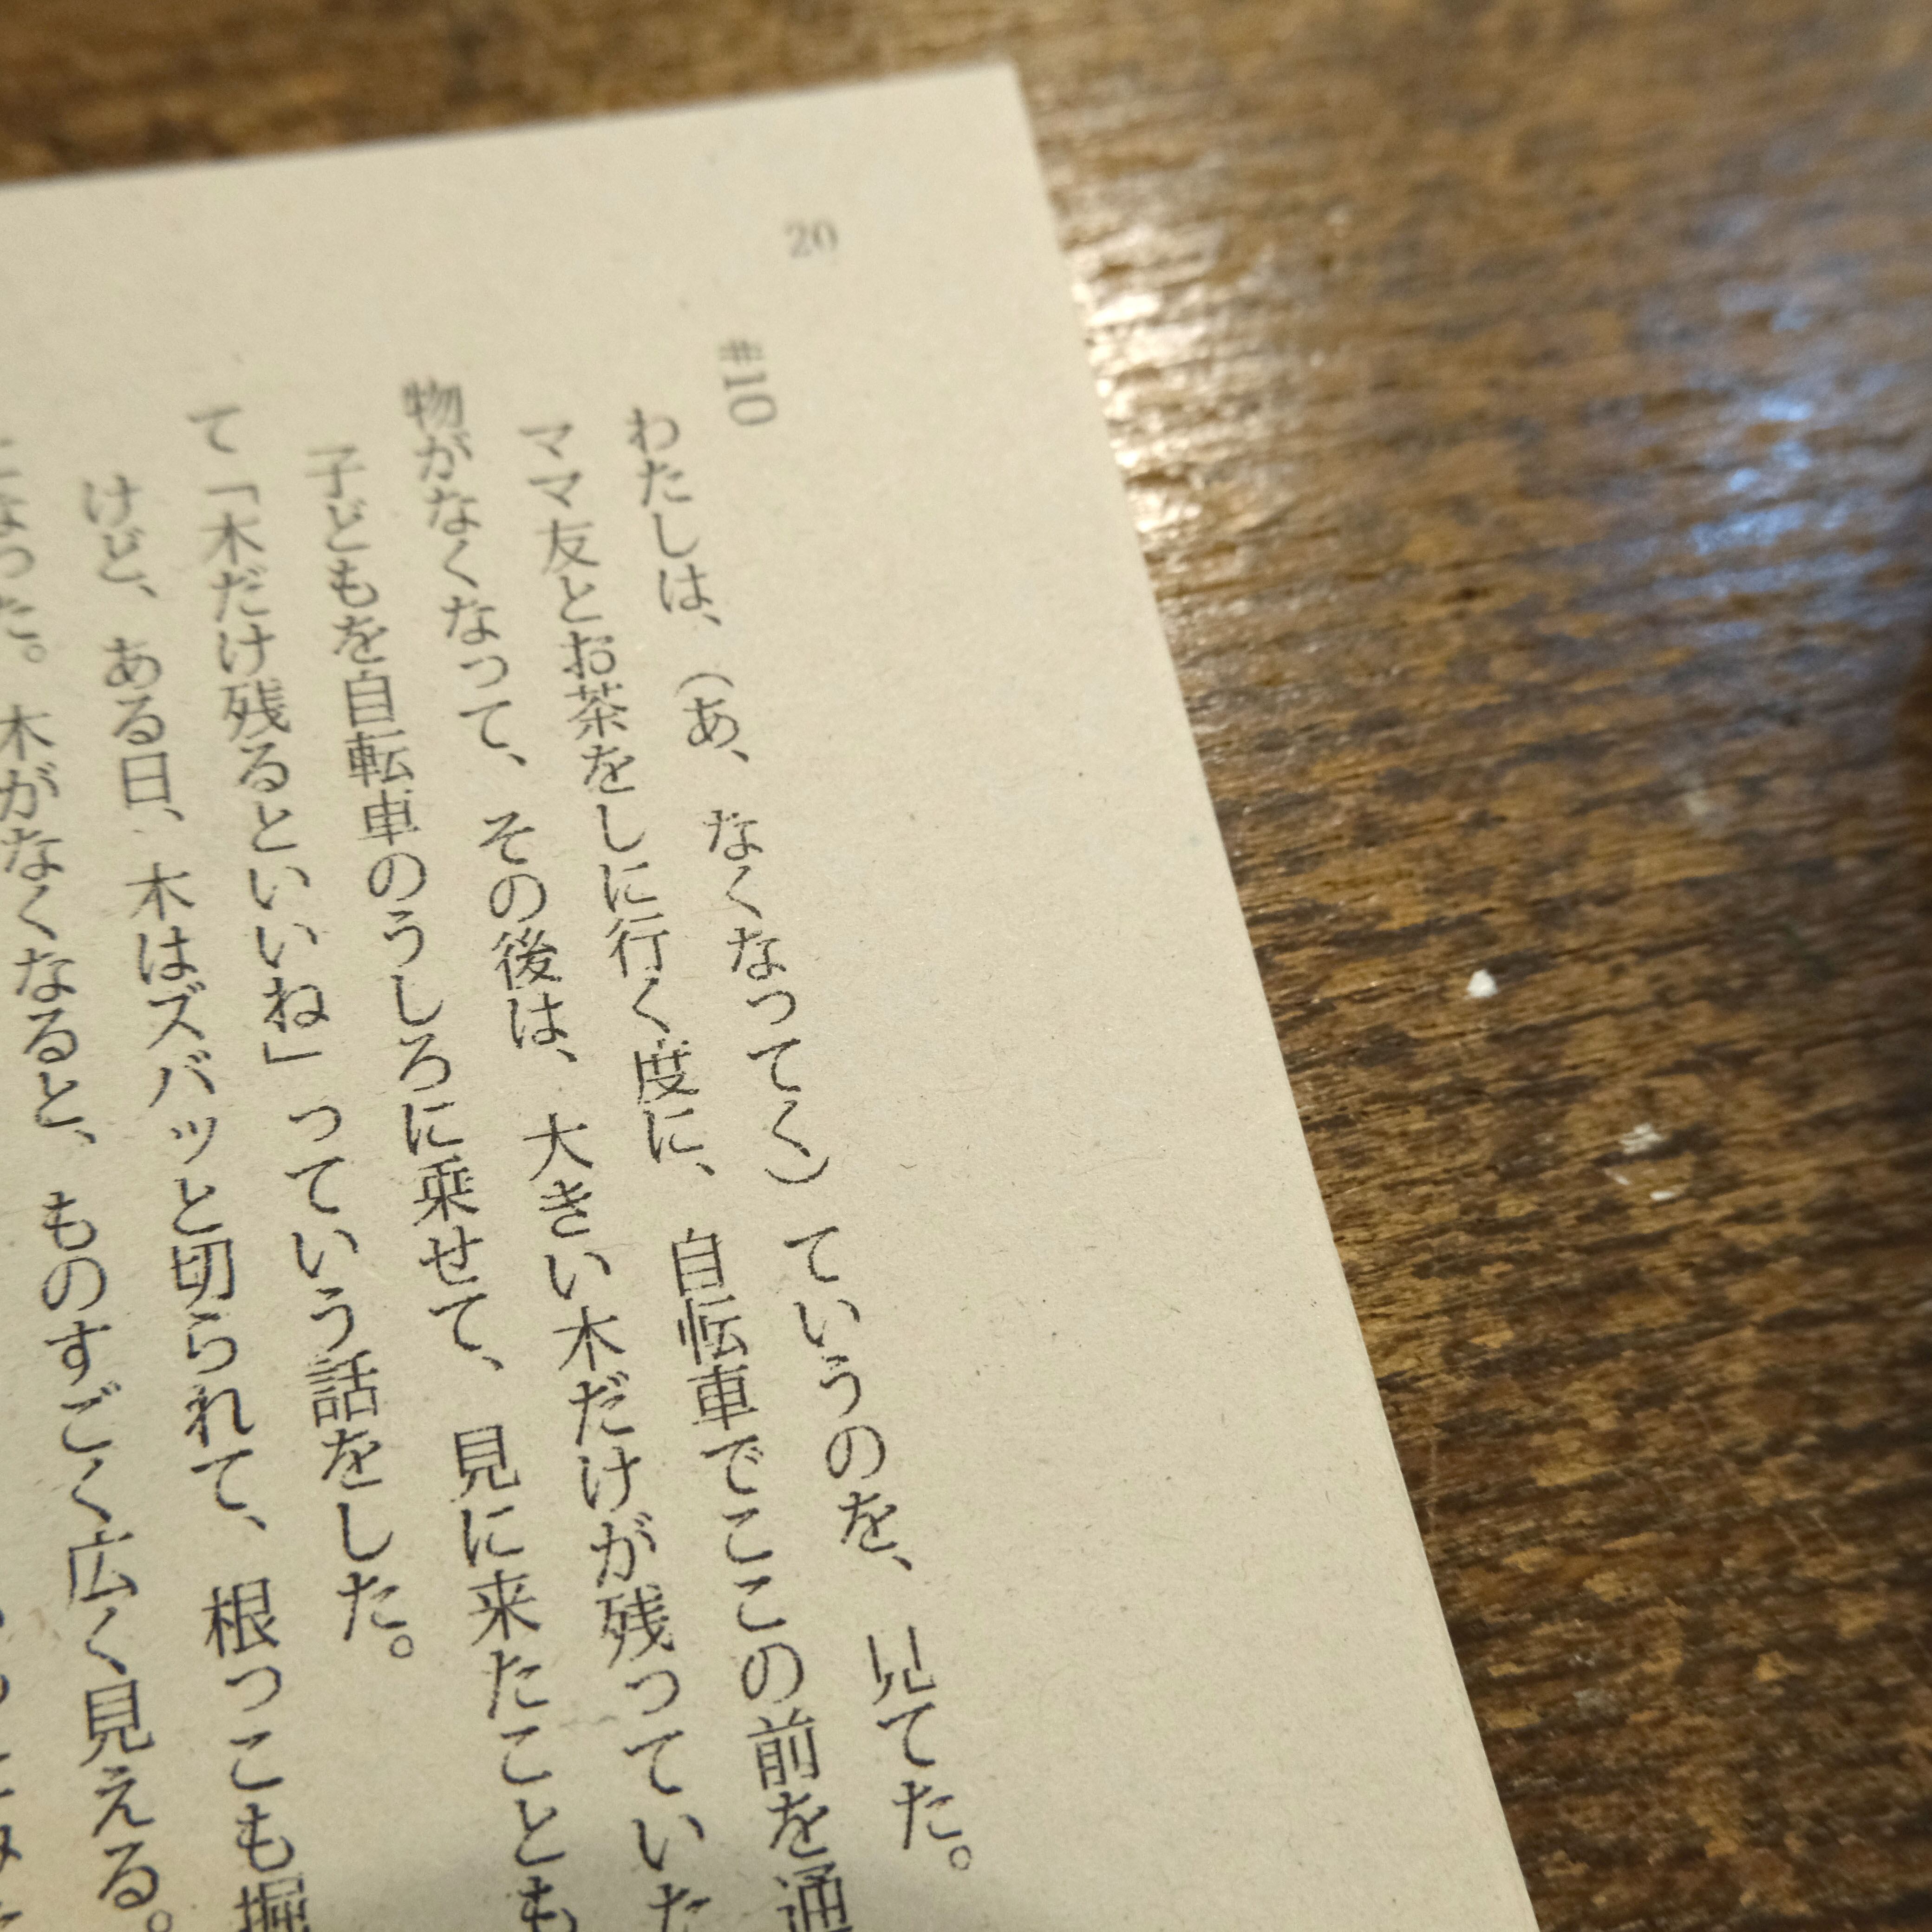 20
#10
わたしは、（あ、なくなってく）ていうのを、見てた。
ママ友とお茶をしに行く度に、自転車でここの前を通
物がなくなって、その後は、大きい木だけが残っていた
子どもを自転車のうしろに乗せて、見に来たことも
て「木だけ残るといいね」っていう話をした。
けど、ある日、木はズバッと切られて、根っこも掘
なった。木がなくなると、ものすごく広く見える。